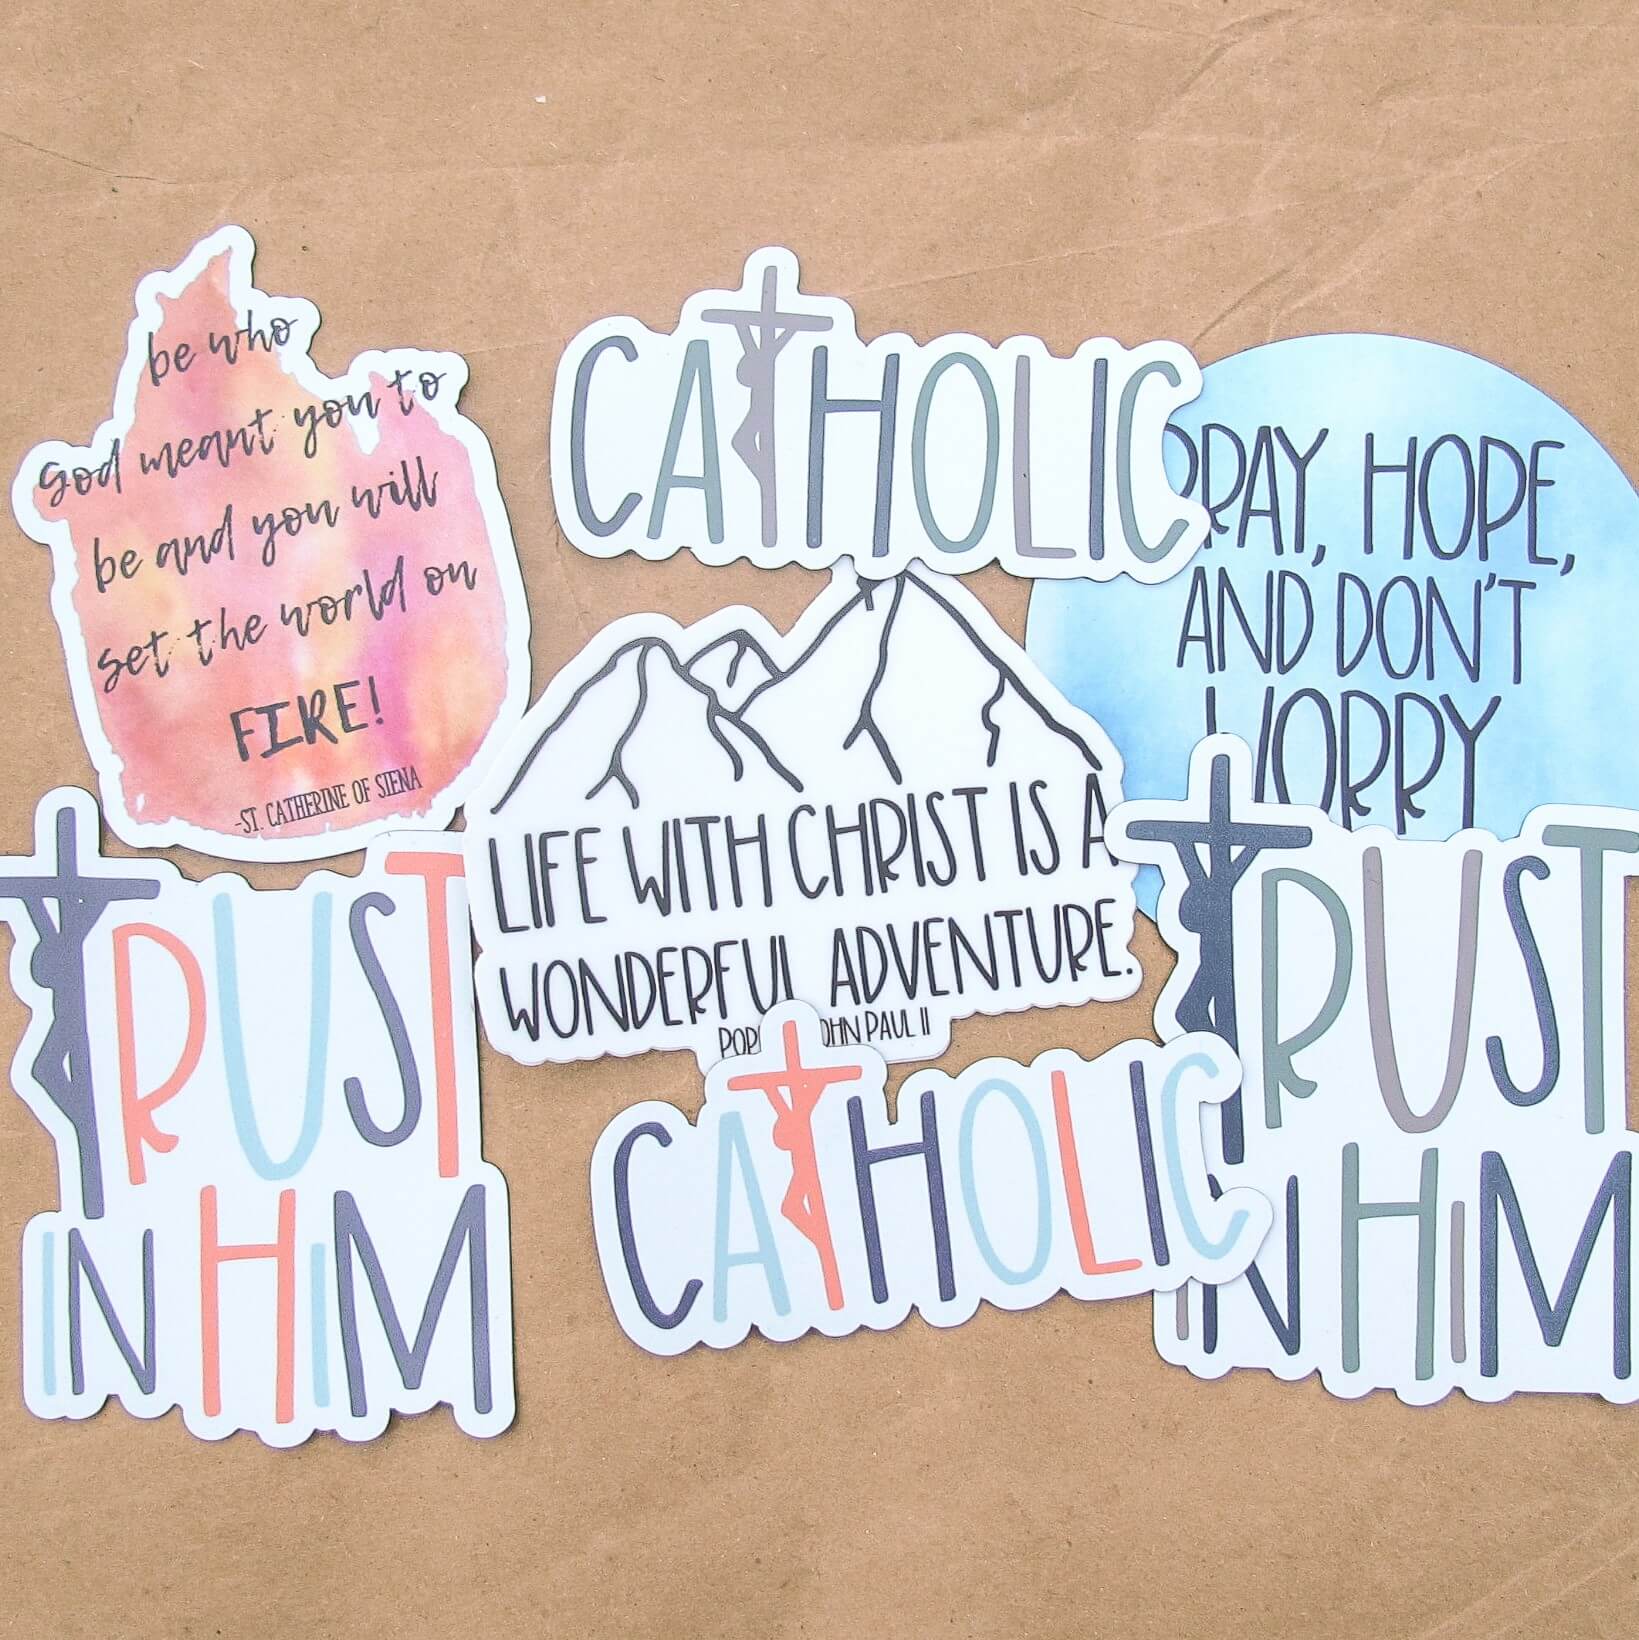 be who
god meant you to
be and you will
set the world on
FIRE!
-ST. CATHERINE OF SIENA
CATHOLIC
PRAY, HOPE,
AND DON'T
WORRY
LIFE WITH CHRIST IS A
WONDERFUL ADVENTURE.
JOHN PAUL II
TRUST
IN HiM
CATHOLIC
TRUST
IN HiM